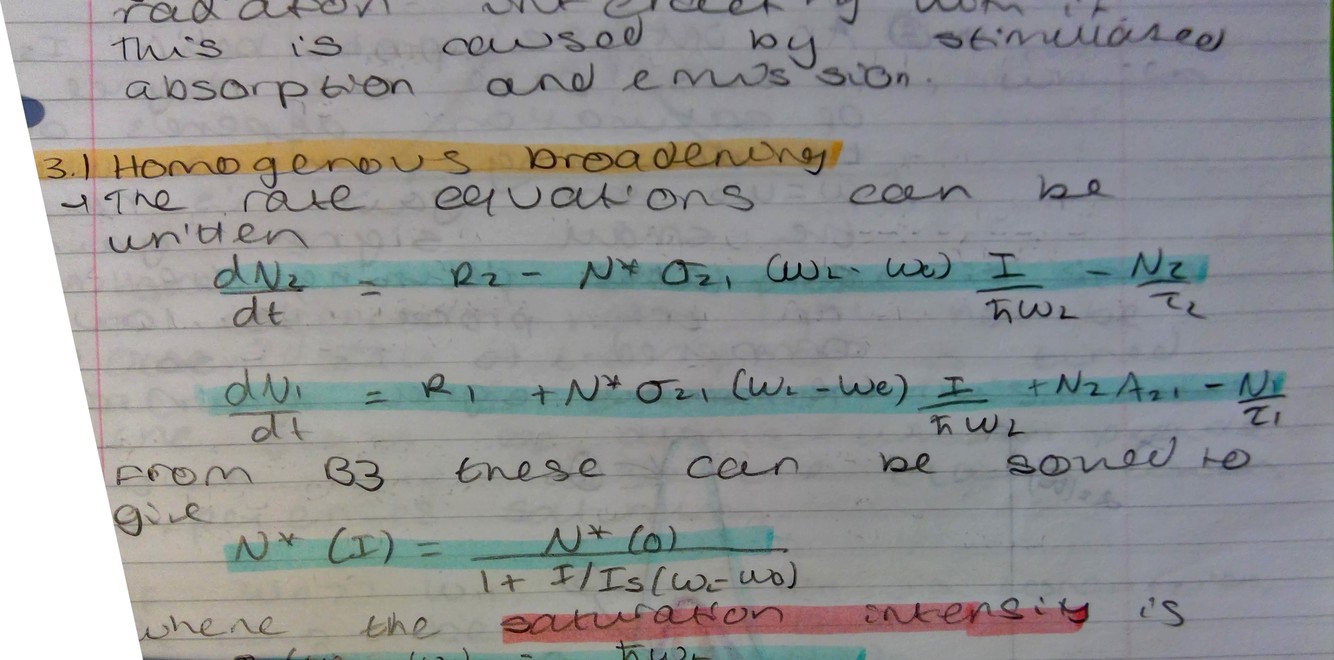 this is caused by stimulated
absorption and emission.
3.1 Homogenous broadening
→ The rate equations can be
written
dN₂/dt = R₂ - N* σ₂₁ (ω_L - ω₀) I/ħω_L - N₂/τ₂
dN₁/dt = R₁ + N* σ₂₁ (ω_L - ω₀) I/ħω_L + N₂A₂₁ - N₁/τ₁
From B3 these can be solved to
give
N* (I) = N* (0)/1 + I/Is(ω_L - ω₀)
where the saturation intensity is